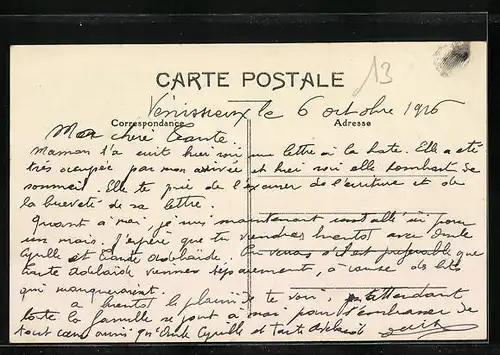 13
CARTE POSTALE
Vénissieux le 6 octobre 1916
Correspondance
Adresse
Ma chère Tante
Maman t'a écrit hier soir une lettre à la hate. Elle a été
très occupée par mon arrivée et hier soir elle tombait de
sommeil. Elle te prie de l'excuser de l'écriture et de
la brièveté de sa lettre.
Quant à moi, je suis maintenant installé ici pour
un mois. J'espère que tu viendras bientot avec Oncle
Cyrille et Tante Adelaïde. Tu verras s'il est préférable que
Tante Adelaïde vienne séparément, à cause des lits
qui manqueraient.
a bientot le plaisir de te voir, en attendant
toute la famille se joint à moi pour t'embrasser de
tout cœur ainsi qu'Oncle Cyrille et Tante Adelaïde